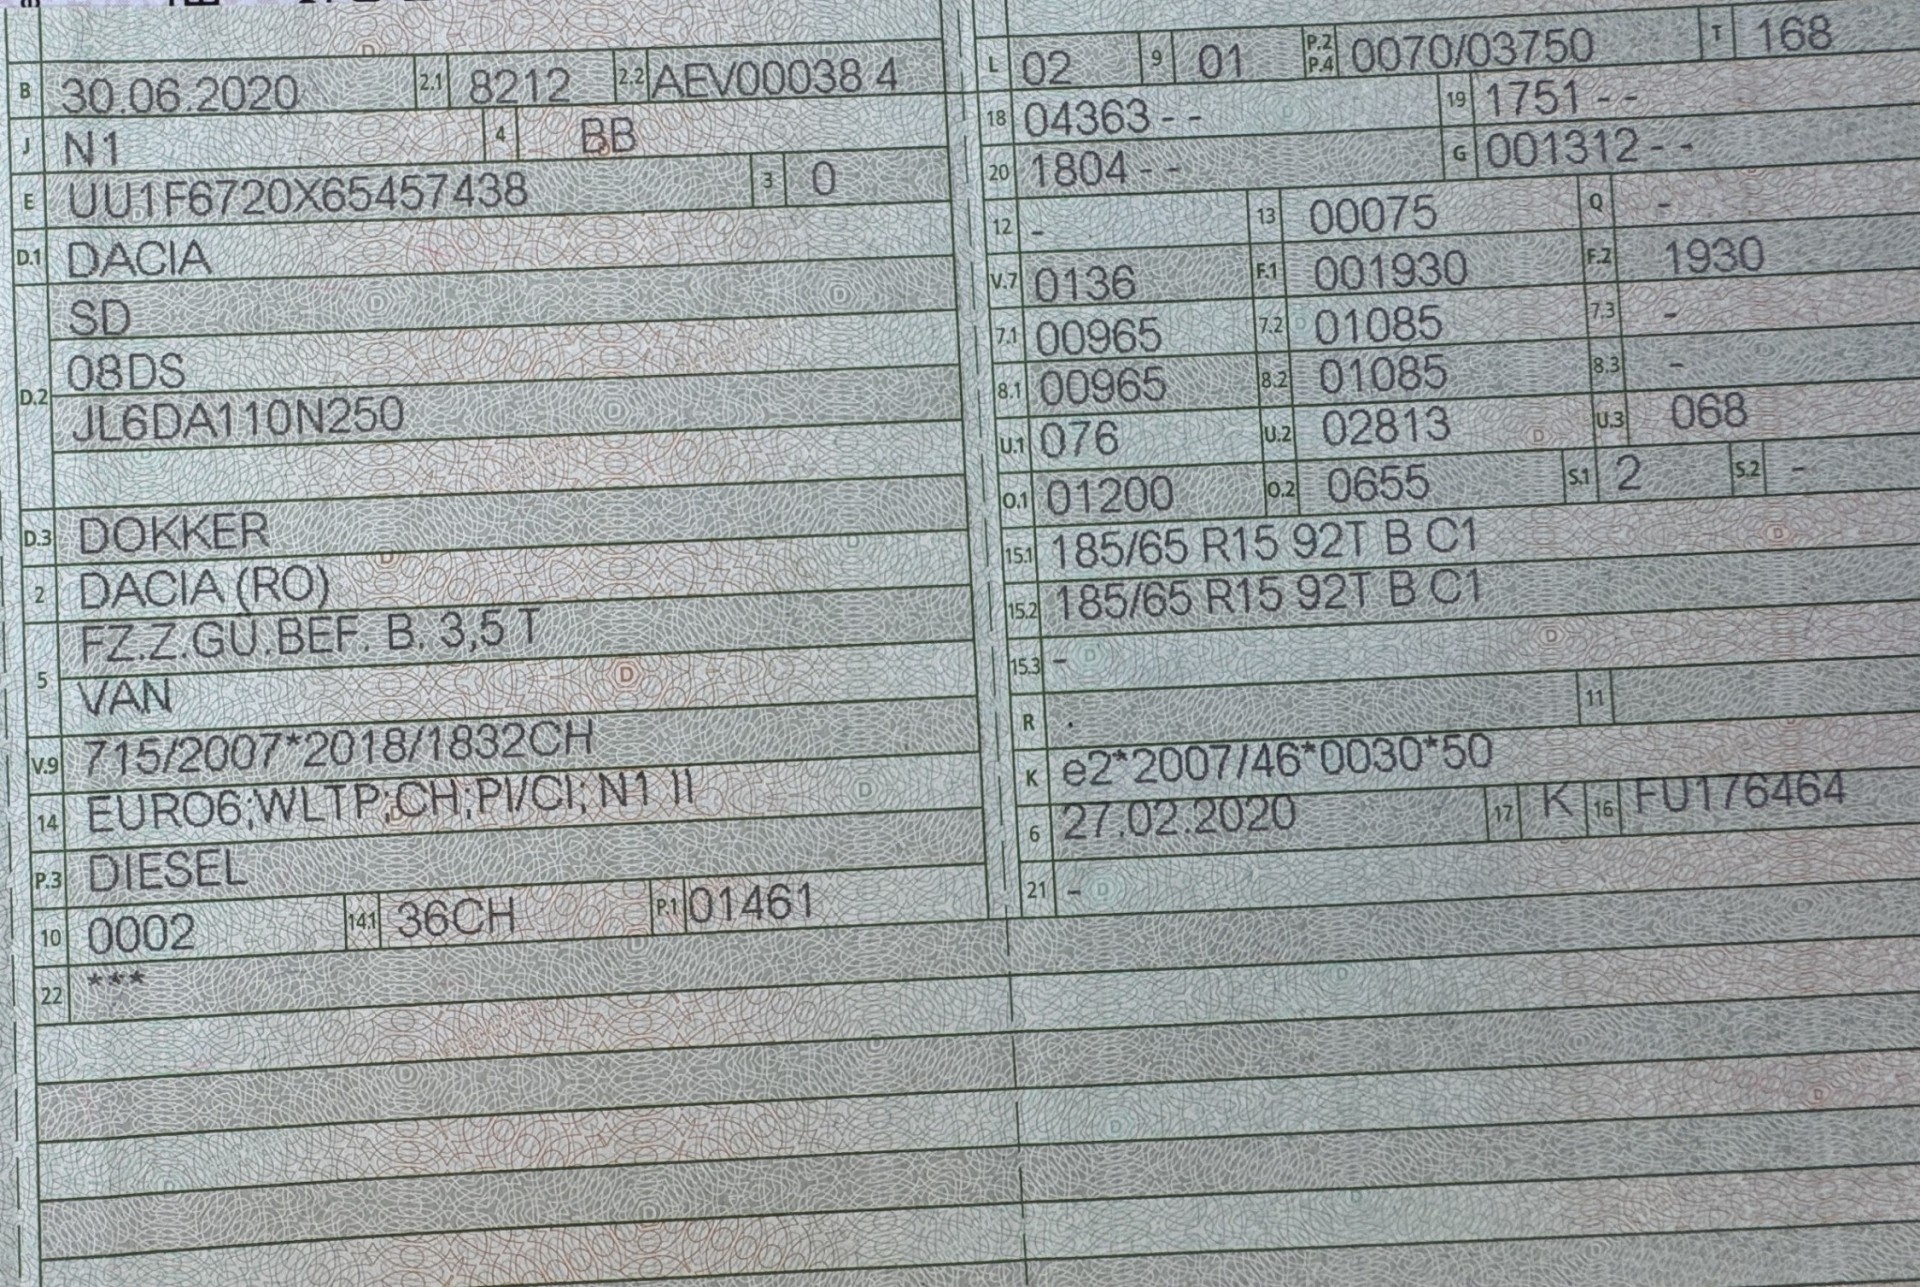 B 30.06.2020 2.1 8212 2.2 AEV00038 4
J N1 4 BB
E UU1F6720X65457438 3 0
D.1 DACIA
D.2 SD
08DS
JL6DA110N250
D.3 DOKKER
2 DACIA (RO)
5 FZ.Z.GU.BEF. B. 3,5 T
VAN
V.9 715/2007*2018/1832CH
14 EURO6;WLTP;CH;PI/CI; N1 II
P.3 DIESEL
10 0002 14.1 36CH P.1 01461
22 ***
L 02 9 01 P.2 P.4 0070/03750 T 168
18 04363 - - 19 1751 - -
20 1804 - - G 001312 - -
12 - 13 00075 Q -
V.7 0136 F.1 001930 F.2 1930
7.1 00965 7.2 01085 7.3 -
8.1 00965 8.2 01085 8.3 -
U.1 076 U.2 02813 U.3 068
O.1 01200 O.2 0655 S.1 2 S.2 -
15.1 185/65 R15 92T B C1
15.2 185/65 R15 92T B C1
15.3 -
R . 11
K e2*2007/46*0030*50
6 27.02.2020 17 K 16 FU176464
21 -